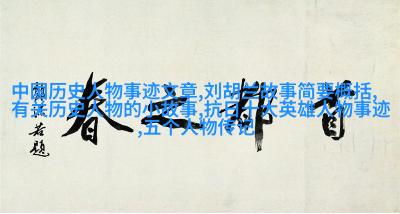 中国历史人物事迹文章,刘胡兰故事简要概括,
有关历史人物的小故事,抗日十大英雄人物事迹
,五个人物传记
首都之春
郭沫若題